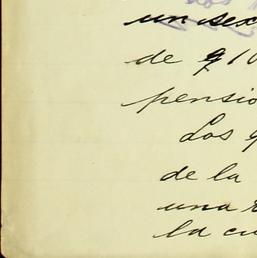 un sex
de 910
pensio
Los q
de la
una r
la cu